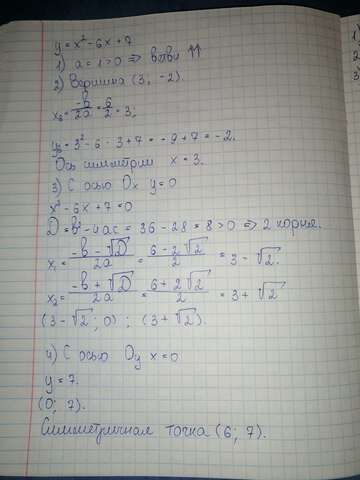 y = x² - 6x + 7
1) a = 1 > 0 => ветви ↑↑
2) Вершина (3, -2).
x₀ = -b/2a = 6/2 = 3;
y₀ = 3² - 6 · 3 + 7 = -9 + 7 = -2.
Ось симметрии x = 3.
3) С осью Ox y = 0
x² - 6x + 7 = 0
D = b² - 4ac = 36 - 28 = 8 > 0 => 2 корня.
x₁ = (-b - √D)/2a = (6 - 2√2)/2 = 3 - √2.
x₂ = (-b + √D)/2a = (6 + 2√2)/2 = 3 + √2
(3 - √2; 0) ; (3 + √2).
4) С осью Oy x = 0
y = 7.
(0; 7).
Симметричная точка (6; 7).
1)
2
3